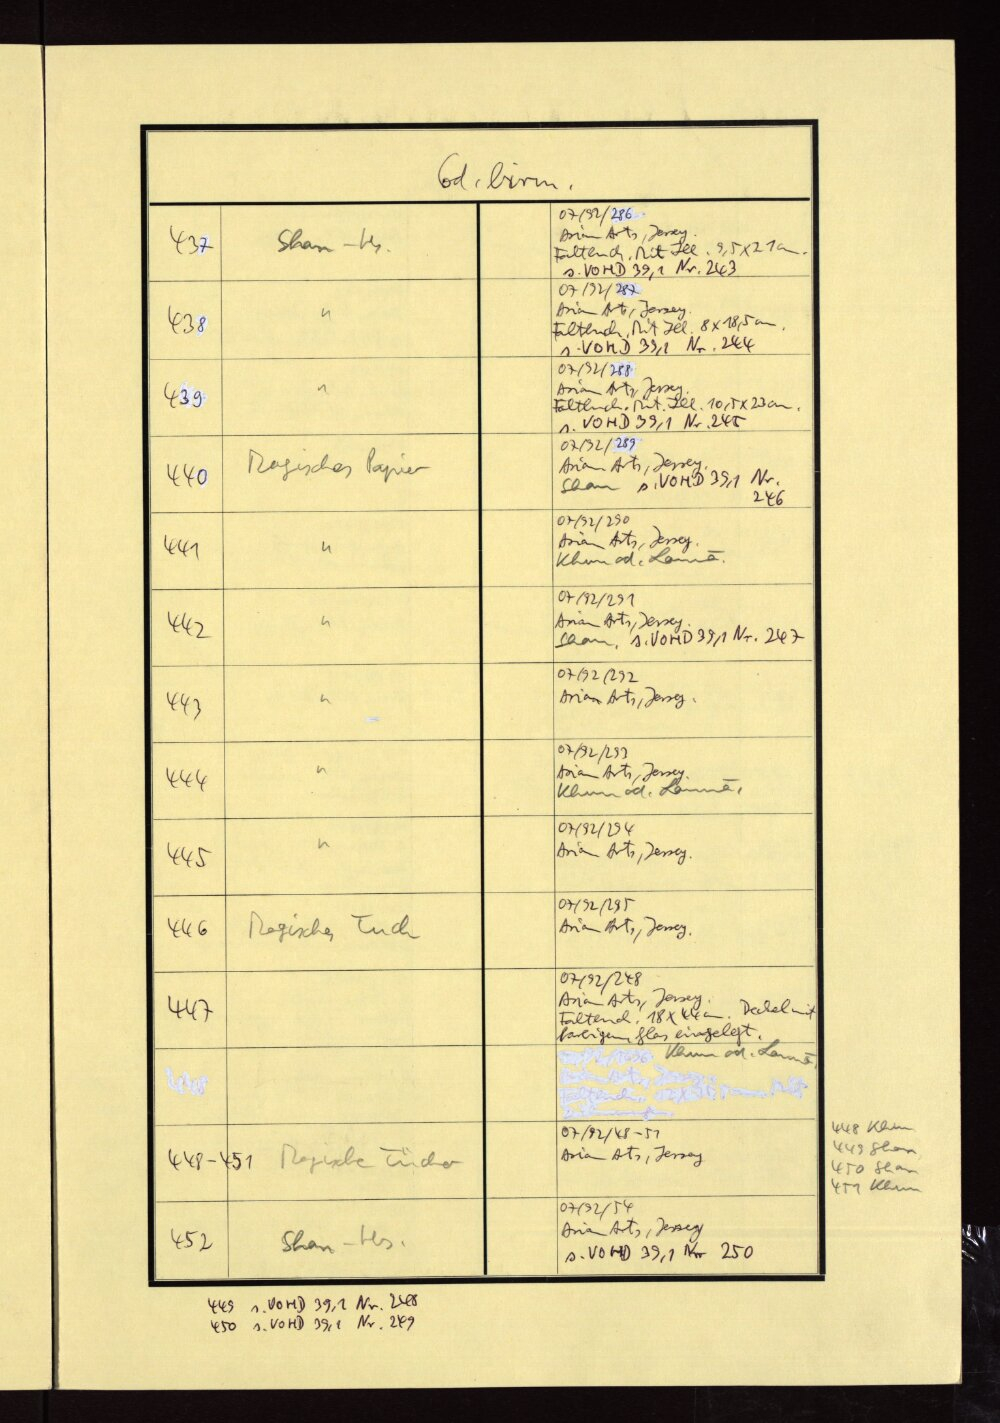 Cod. birm.
437 Shan-Hs. 07/92/286
Asian Arts, Jersey.
Faltbuch. Mit Ill. 9,5 x 21 cm.
s. VOHD 39,1 Nr. 243
438 " 07/92/287
Asian Arts, Jersey.
Faltbuch. Mit Ill. 8 x 18,5 cm.
s. VOHD 39,1 Nr. 244
439 " 07/92/288
Asian Arts, Jersey.
Faltbuch. Mit Ill. 10,5 x 23 cm.
s. VOHD 39,1 Nr. 245
440 Magisches Papier 07/92/289
Asian Arts, Jersey.
Shan s. VOHD 39,1 Nr.
246
441 " 07/92/290
Asian Arts, Jersey.
Khün od. Lannā.
442 " 07/92/291
Asian Arts, Jersey.
Shan. s. VOHD 39,1 Nr. 247
443 " 07/92/292
Asian Arts, Jersey.
444 " 07/92/293
Asian Arts, Jersey.
Khün od. Lannā.
445 " 07/92/294
Asian Arts, Jersey.
446 Magisches Tuch 07/92/295
Asian Arts, Jersey.
447 07/92/248
Asian Arts, Jersey.
Faltbuch. 18 x 44 cm. Deckel mit
farbigem Glas eingelegt.
Khün od. Lannā
448
448-451 Magische Tücher 07/92/48-51
Asian Arts, Jersey
448 Khün
449 Shan
450 Shan
451 Khün
452 Shan-Hs. 07/92/54
Asian Arts, Jersey
s. VOHD 39,1 Nr 250
449 s. VOHD 39,1 Nr. 248
450 s. VOHD 39,1 Nr. 249